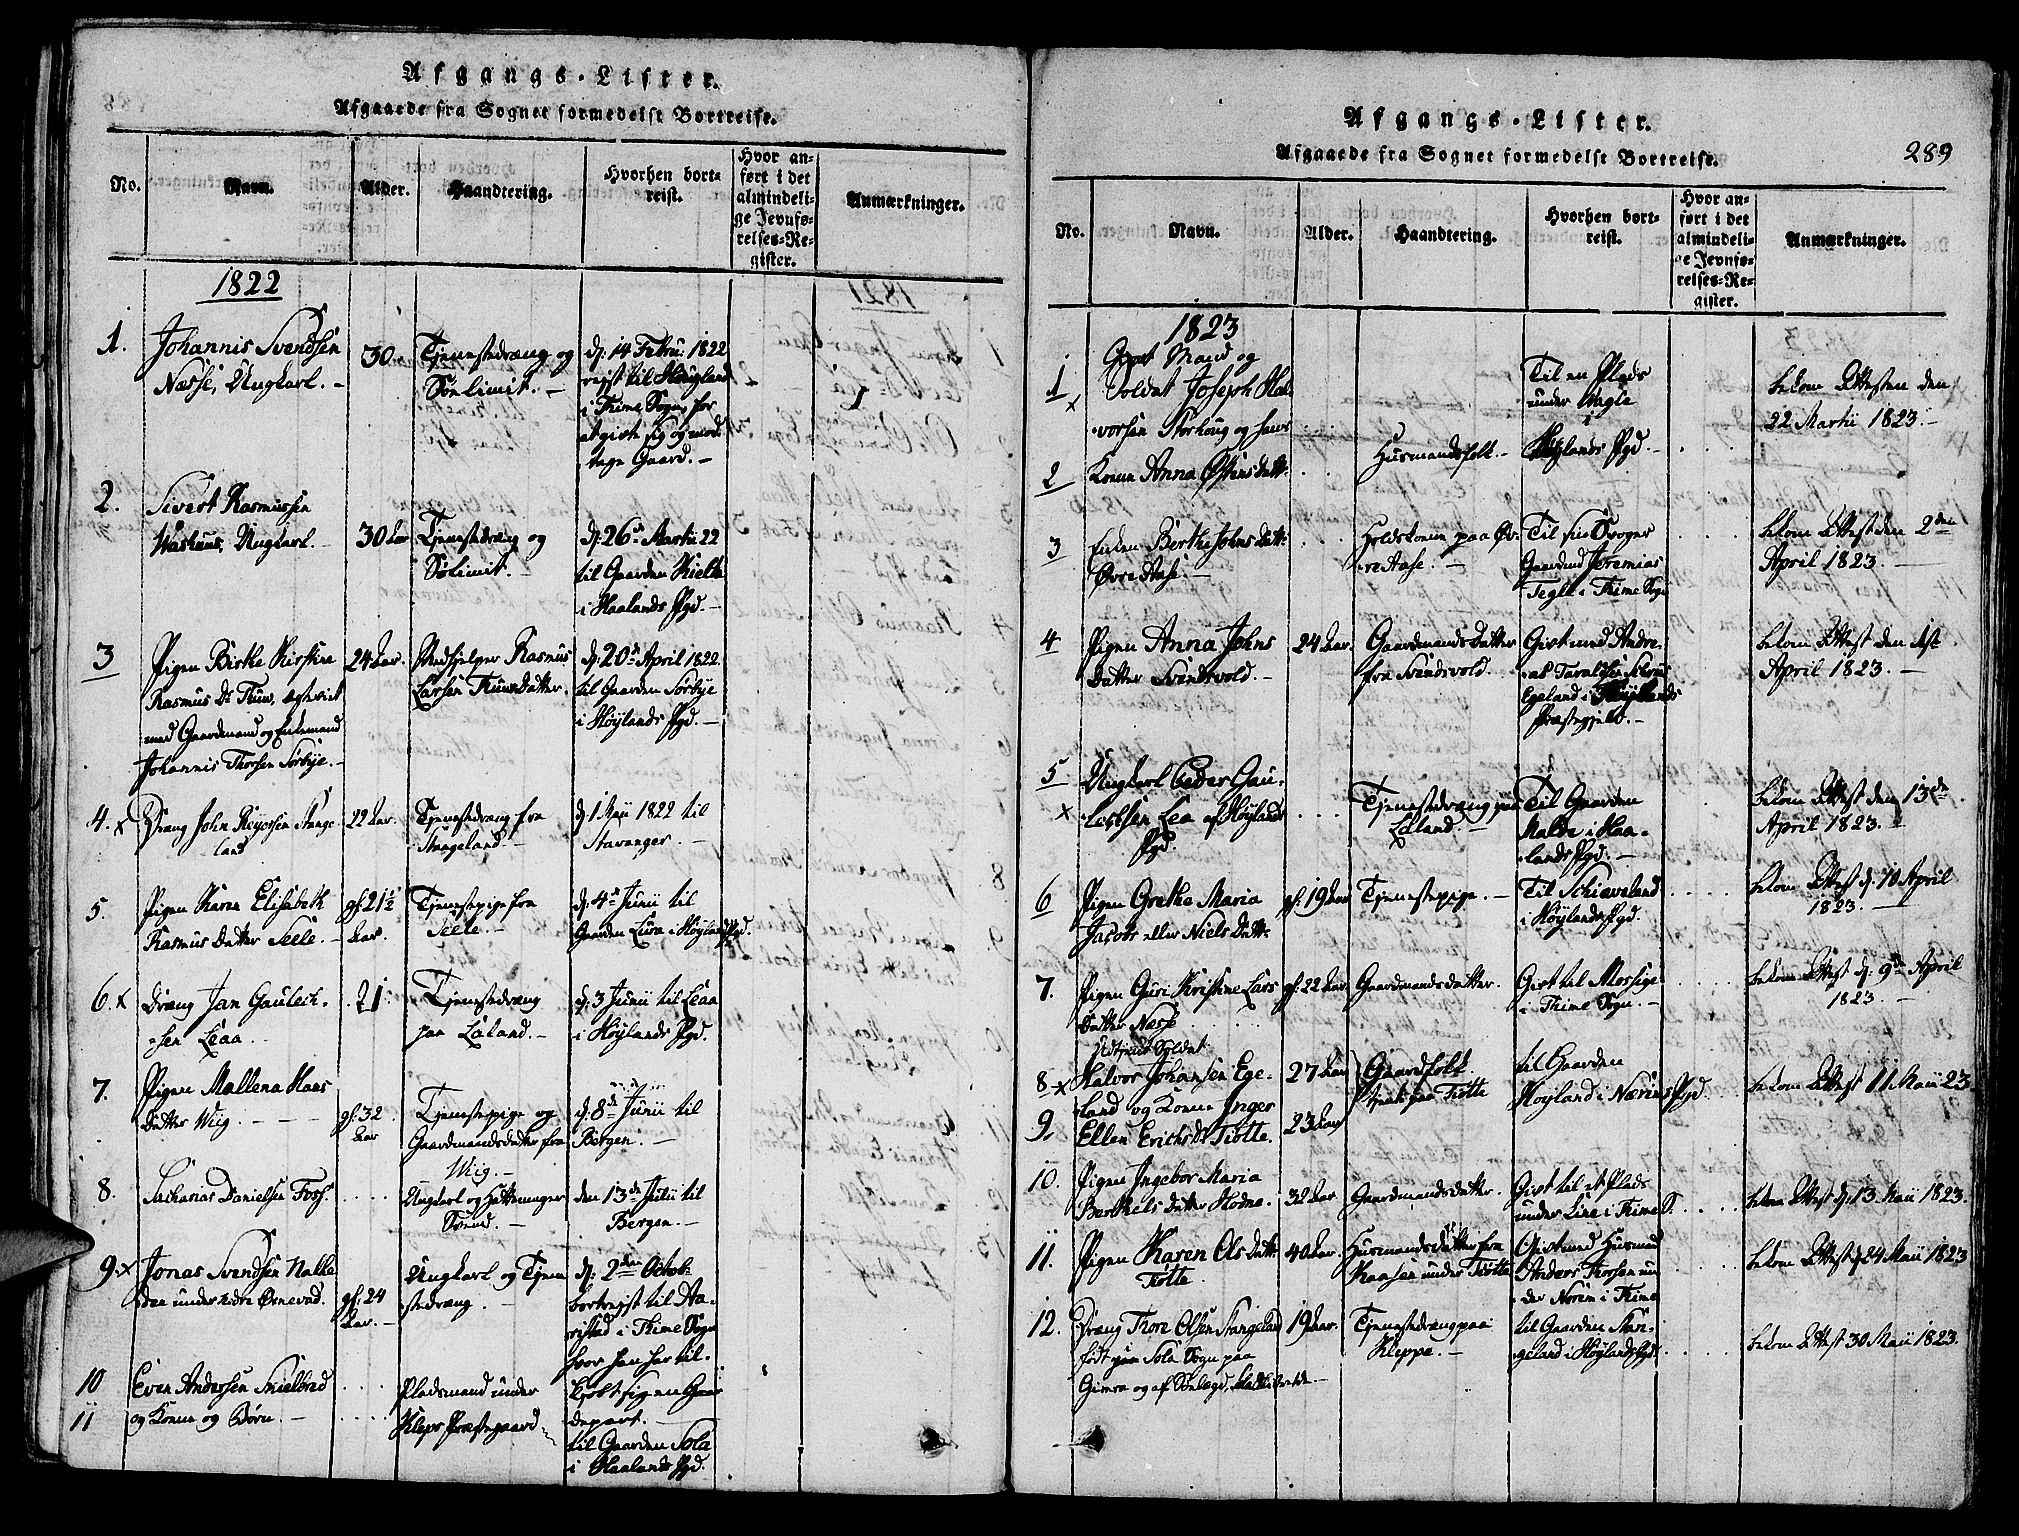 Afgangs-Lister.
Afgaaede fra Sognet formedelst Bortreise.
No.
Navn.
Alder.
Haandtering.
Hvorhen bort-
reist.
Hvor an-
ført i det
almindeli-
ge Jevnfø-
relses-Re-
gister.
Anmærkninger.
1822
1.
Johannis Svendsen
Næsse, Ungkarl. -
30.
Tjenestedræng og
Sølimit. -
d: 14 Febru: 1822
rejst til
i Thime Sogn, for
at givte sig og mod-
tage Gaard. -
2.
Sivert Rasmussen
Ungkarl. -
30 Aar
Tjenestedræng og
Sølimit. -
d: 26de Martii 22
til Gaarden
i Haalands Pgd. -
3
Pigen Birthe Kirstine
Rasmus Dr Thuu, ægteviet
med Gaardmand og Enkemand
Johannis Thorsen Sørbye. -
24 Aar.
Medhjelper Rasmus
Larsen Thuus Datter.
d: 20de April 1822
til Gaarden Sørbye
i Høylands Pgd. -
4. x
Dræng John Stange-
land
22 Aar.
Tjenestedræng fra
Stangeland. -
d 1 Maii 1822 til
Stavanger. -
5.
Pigen Karen Elisabeth
Rasmus Datter Seele. -
gl. 21½
Aar.
Tjenestepige fra
Seele. -
d: 4de Junii til
Gaarden Lura i Høylands Pgd.
6. x
Dræng Jan Gautech-
-sen Leaa.
21.
Tjenestedræng
paa Laland. -
d: 3 Junii til Leaa
i Høylands Pgd. -
7.
Pigen Mallena Hans
Datter Wiig. -
gl. 32
Aar
Tjenestepige og
Gaardmandsdatter fra
Wiig. -
d: 8de Junii til
Bergen. -
8.
Sacharias Danielsen Foss.
Ungkarl og
Svend. -
den 13de Julii til
Bergen. -
9. x
Jonas Svendsen
under nedre Ørnevad.
gl. 24
Aar. -
Ungkarl og Tjene-
stedræng.
d: 2den Octob:
bortrejst til Aa-
ristad i Thime Sogn
hvor han har til-
kjøbt sig en Gaar-
depart. -
10
11
Even Andersen
og Kone og Børn. -
Pladsmand under
Klepp Præstegaard
til Gaarden Sola
i Haalands Pgd.
Afgangs-Lister.
Afgaaede fra Sognet formedelst Bortreise.
289
No.
Navn.
Alder.
Haandtering.
Hvorhen bort-
reist.
Hvor an-
ført i det
almindeli-
ge Jevnfø-
relses-Re-
gister.
Anmærkninger.
1823
1
x
Mand og
Soldat Joseph Hal-
vorsen Storhoug og hans
Husmandsfolk. -
Til en Plads
under Vagle
i
Høylands Pgd. -
bekom Attesten den
22 Martii 1823. -
2
Kone Anna Østens Datt:
3
Enken Berthe Johns Datt:
Øvre Aase. -
Holdskone paa Øv-
re Aase. -
Til sin Svoger
Gaardmd Jeremias
Tegle i Thime Sogn
bekom Attest den 2den
April 1823. -
4
Pigen Anna Johns
Datter Svendsvold. -
24 Aar.
Gaardmands Datter
fra Svendsvold.
Givt med Andre-
as Taraldsen
Egeland i Høylands
Præstegjeld. -
bekom Attest den 1st
April 1823. -
5
x
Ungkarl Peder Gau-
Lea af Høylands
Pgd.
Tjenestedræng paa
Laland. -
Til Gaarden
Malde i Haa-
lands Pgd. -
bekom Attest den 13de
April 1823. -
6
Pigen Grethe Maria
Jacobs eller Niels Datt:
gl. 19 Aar
Tjenestepige. -
Til Schiæveland
i Høylands Pgd.
bekom Attest d: 10 April
1823. -
7.
Pigen Guri Kristine Lars
Datter Næsse
gl. 22 Aar
Gaardmandsdatter.
Givt til Mossige
i Thime Sogn. -
bekom Attest d: 9de April
1823. -
8 x
Udtjent Soldat
Halvor Johansen Ege-
land og Kone Inger
27 Aar
Gaardfolk
paa Tiøtte
til Gaarden
Høyland i Nærims Pgd.
bekom Attest 11 Maii 23
9
Ellen Erichsdr Tiøtte.
23 Aar
10.
Pigen Ingebor Maria
Berthels Datter Hodne.
32 Aar.
Gaardmandsdatter.
Givt til et Plads
under Line i Thime S.
bekom Attest d: 13 Maii 1823.
11.
Pigen Karen Ols Datt:
Tiøtte.
40 Aar.
Husmandsdatter fra
Haasen under Tiøtte
Givt med Husmd
Anders Torsen un-
der Norem i Thime
bekom Attest d: 24 Maii 1823
12.
Dræng Tore Olsen Stangeland
født paa Sola Sogn paa
Gimra og af Sølægd,
19 Aar.
Tjenestedræng paa
Kleppe. -
til Gaarden Stan-
geland i Høylands Pgd.
bekom Attest 30 Maii 1823.